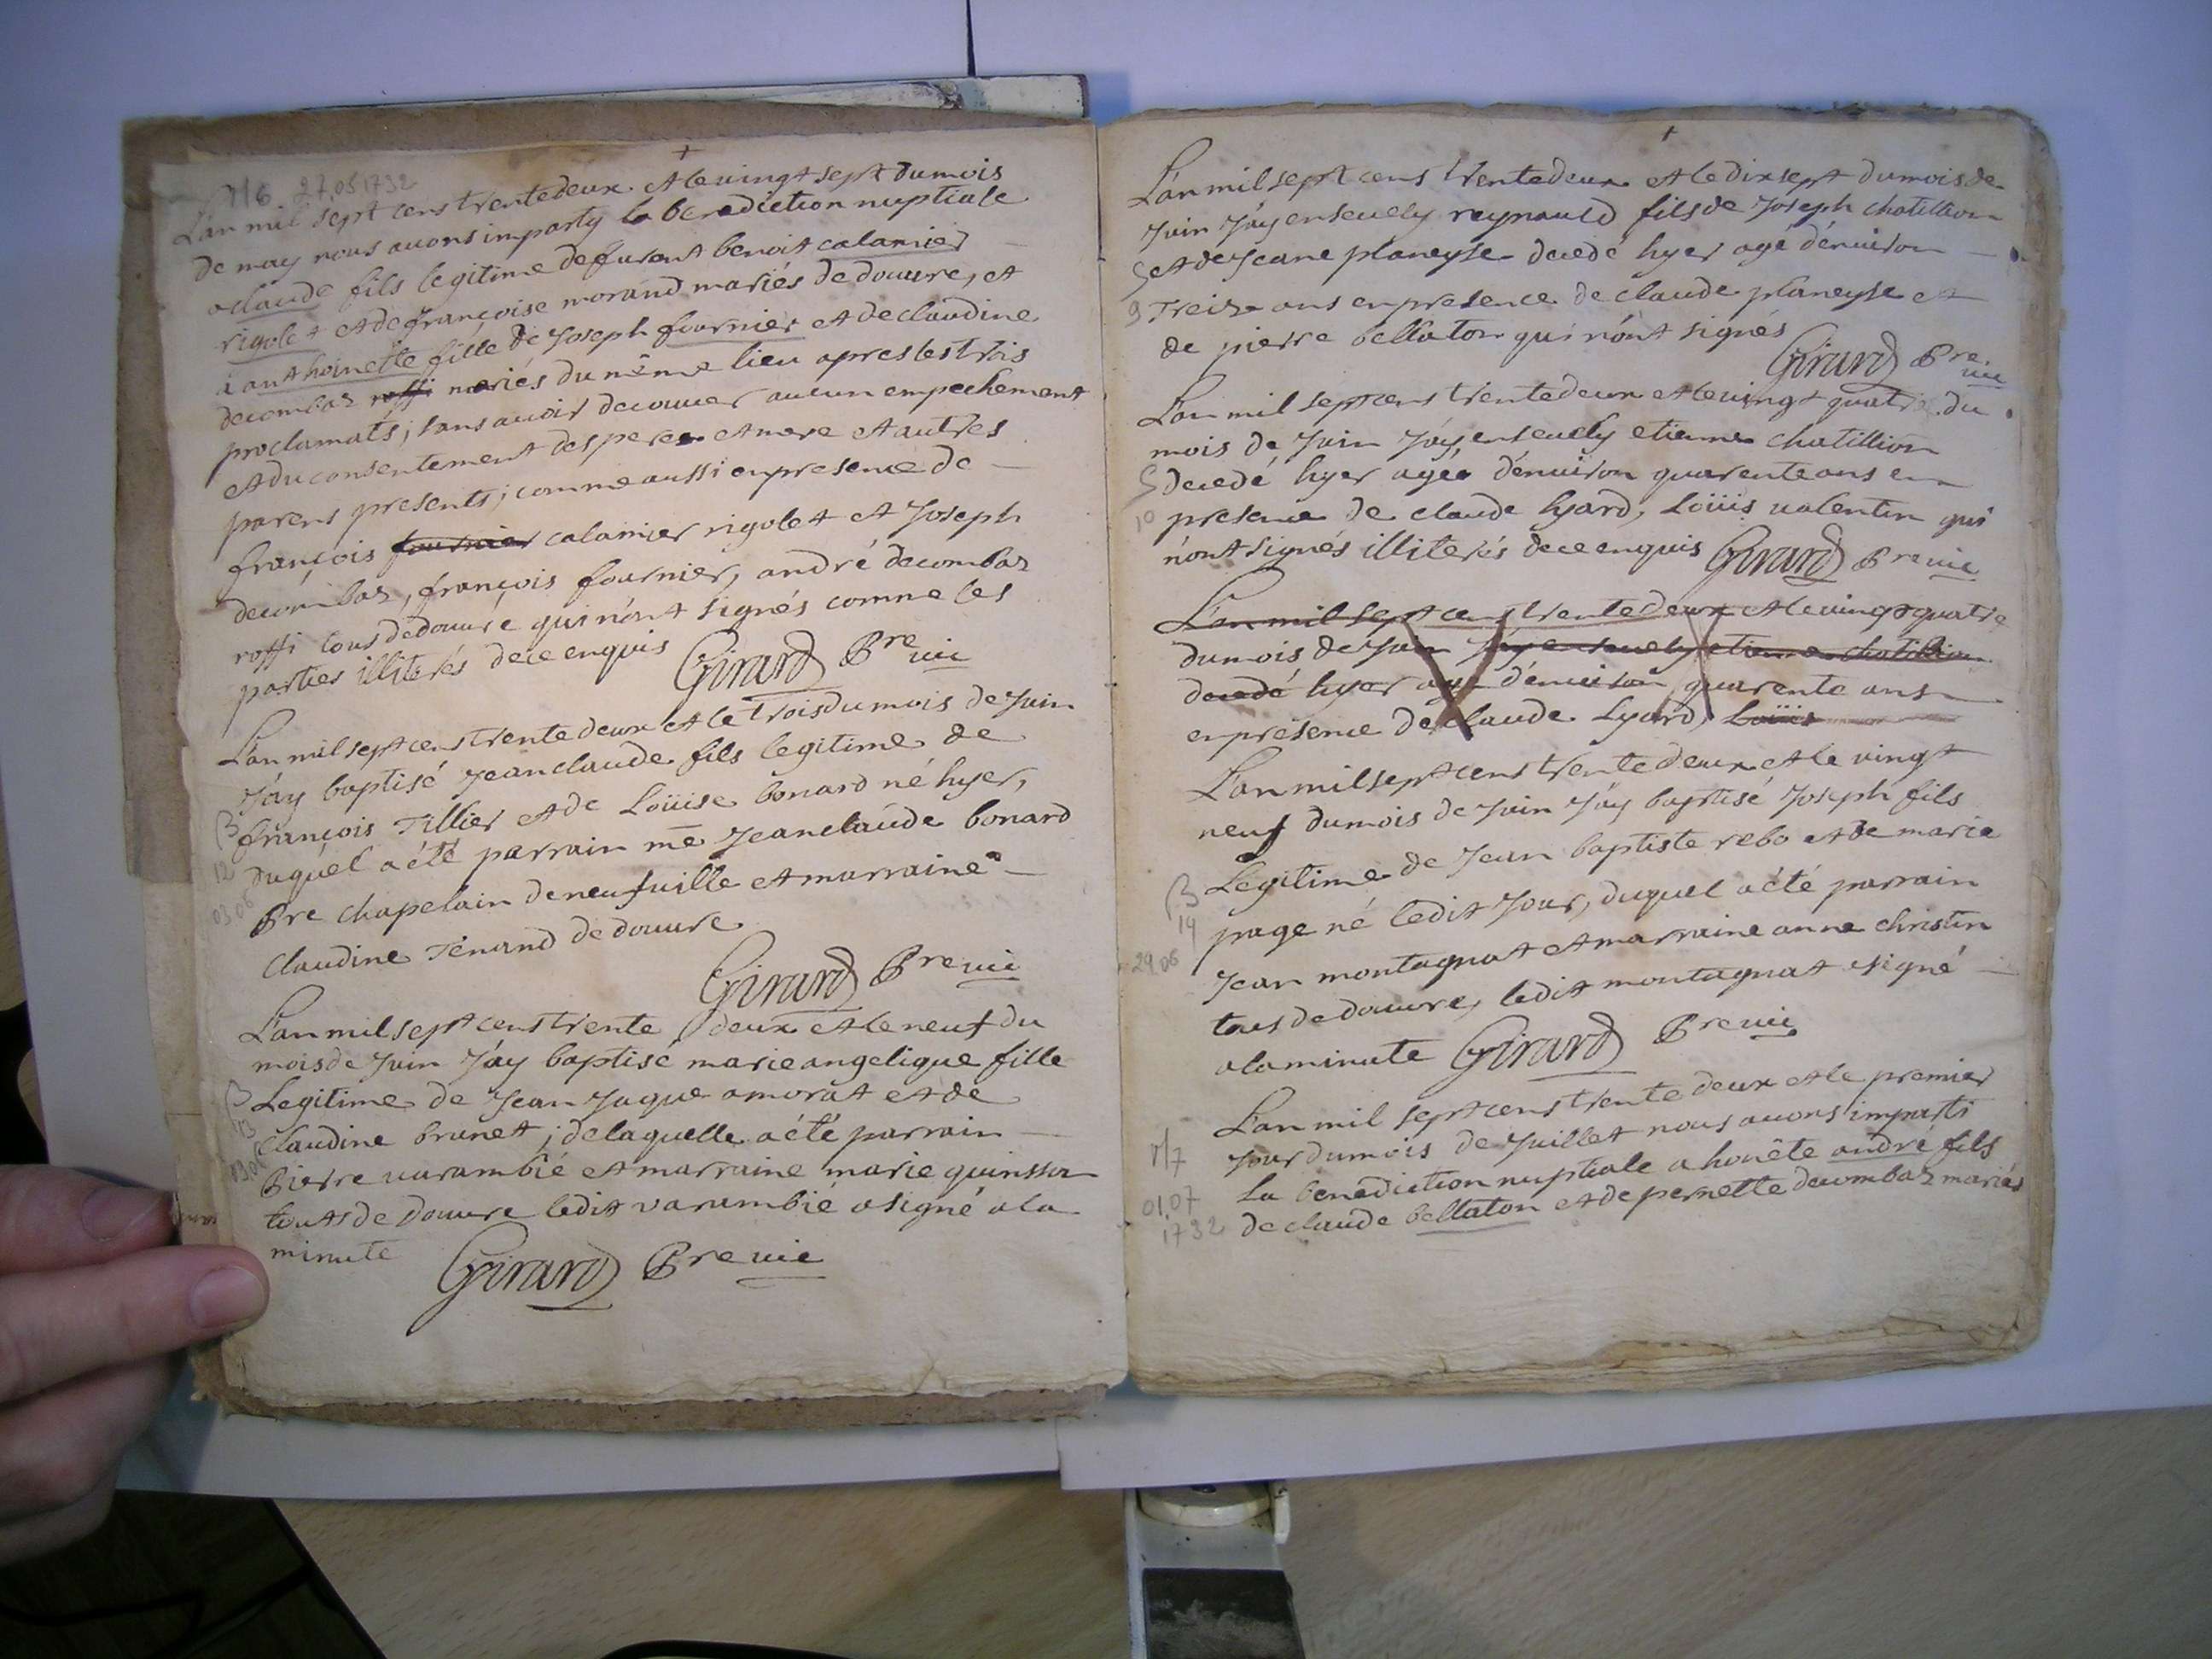 +
M6 27.05 1732
L'an mil sept cens trente deux et le vingt sept du mois
de may nous avons imparty la benediction nuptiale
a claude fils legitime de furent benoit calamier
rigolet et de françoise morand mariés de douvre, et
a anthoinette fille de Joseph fournier et de claudine
decombaz roffi mariés du même lieu apres les trois
proclamats; sans avoir decouver aucun empechement
et du consentement des peres et mere et autres
parens presents; comme aussi en presence de
françois fournier calamier rigolet et Joseph
decombaz, françois fournier, andré decombaz
roffi tous de douvre qui n'ont signés comme les
parties illiterés de ce enquis Girard Bre vic
L'an mil sept cens trente deux et le trois du mois de Juin
J'ay baptisé Jean claude fils legitime de
B françois Tillier et de Loüise bonard né hyer,
12 duquel a été parrain me Jean claude bonard
03 06 Bre chapelain de neufville et marraine
Claudine Tenand de douvre
Girard Bre vic
L'an mil sept cens trente deux et le neuf du
mois de Juin J'ay baptisé marie angelique fille
B Legitime de Jean Jaque amorat et de
13 Claudine brunet; de laquelle a été parrain
Pierre varambié et marraine marie quinsson
touts de Douvre ledit varambié a signé a la
minute Girard Bre vic
+
L'an mil sept cens trente deux et le dix sept du mois de
Juin J'ay ensevely reynauld fils de Joseph chatillion
S et de Jeane planeyse decedé hyer agé d'environ
9 Treize ans en presence de claude planeyse et
de pierre bellaton qui n'ont signés
Girard Bre vic
L'an mil sept cens trente deux et le vingt quatre du
mois de Juin J'ay ensevely etienne chatillion
S decedé hyer agée d'environ quarente ans en
10 presence de claude lyard, Loüis valentin qui
n'ont signés illiterés de ce enquis Girard Bre vic
L'an mil sept cens trente deux et le vingt quatre
du mois de Juin J'ay ensevely etienne chatillion
decedé hyer agé d'environ quarente ans
en presence de claude Lyard, Loüis
L'an mil sept cens trente deux et le vingt
neuf du mois de Juin J'ay baptisé Joseph fils
B Legitime de Jean baptiste rebo et de marie
14 page né ledit Jour, duquel a été parrain
29.06 Jean montagnat et marraine anne christin
tous de douvre, ledit montagnat signé
a la minute Girard Bre vic
L'an mil sept cens trente deux et le premier
M7 Jour du mois de Juillet nous avons imparti
La benediction nuptiale a honête andré fils
01.07 1732 de claude bellaton et de pernette decombaz mariés